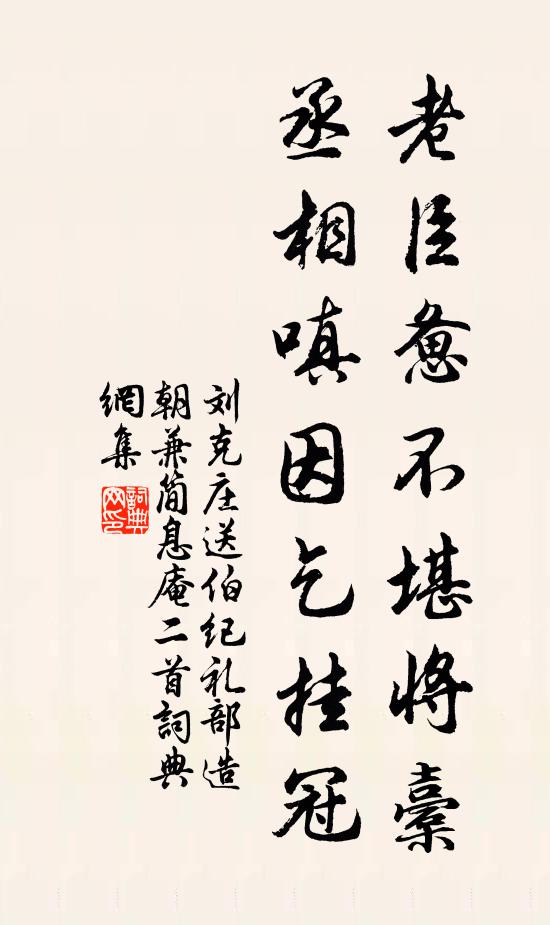 老臣惫不堪将橐
丞相嗔因乞挂冠
刘克庄送伯纪礼部造
朝兼简息庵二首詞典
網集
詞典
网印